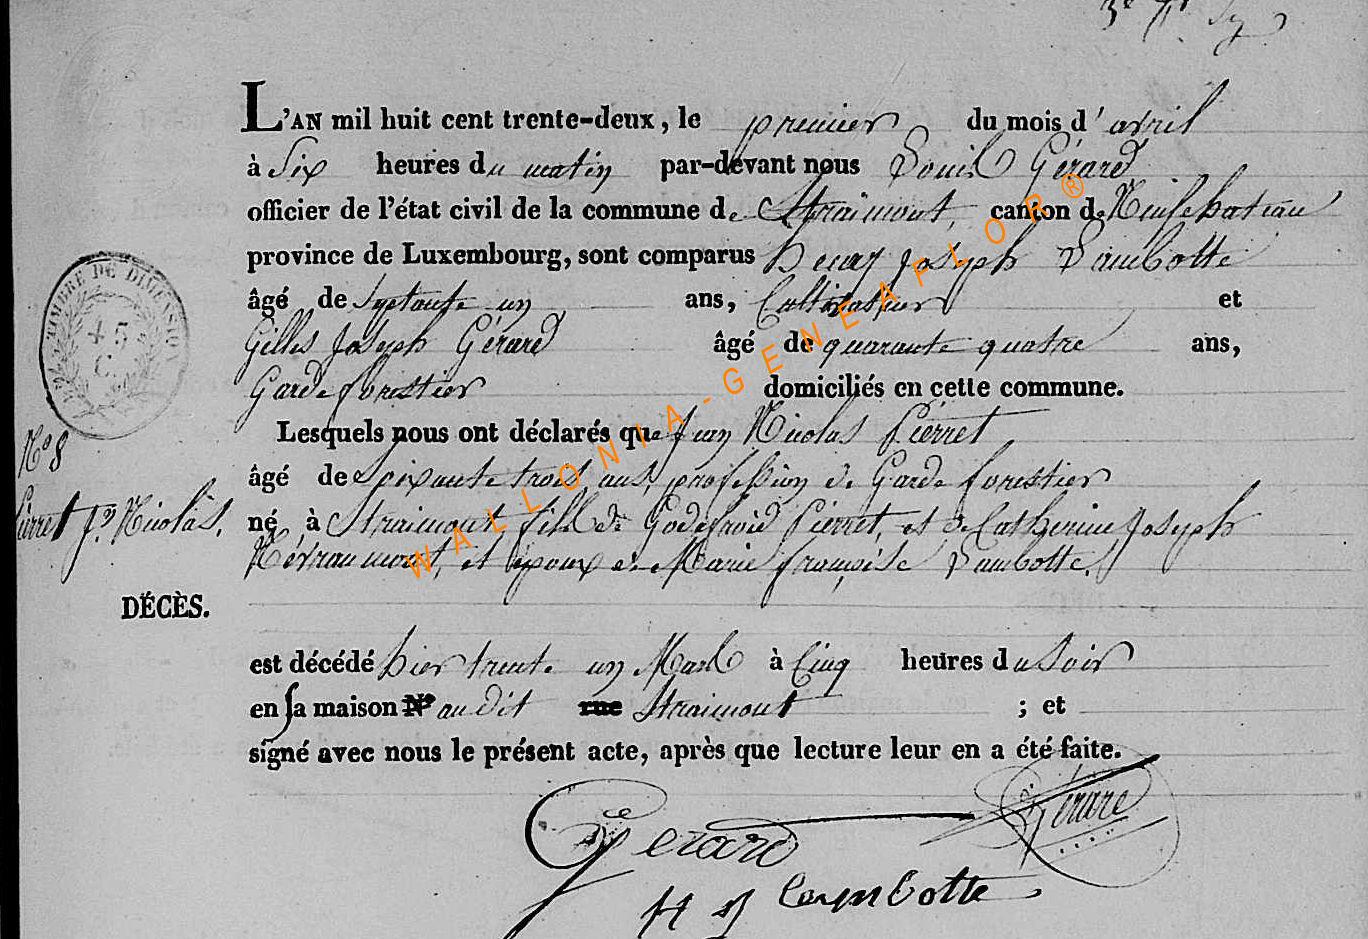 L'AN mil huit cent trente-deux, le premier du mois d'avril
à Six heures du matin par-devant nous Louis Gérard
officier de l'état civil de la commune de Straimont, canton de Neufchateau
province de Luxembourg, sont comparus henry Joseph Lambotte
âgé de Septante un ans, Cultivateur et
Gilles Joseph Gérard âgé de quarante quatre ans,
Garde forestier domiciliés en cette commune.
Lesquels nous ont déclarés que Jean Nicolas Pierret
âgé de Soixante trois ans, profession de Garde forestier
né à Straimont, fils de Godefroid Pierret, et de Catherine Joseph
et époux de Marie françoise Lambotte.
N° 8
Pierret Jn Nicolas.
DÉCÈS.
est décédé hier trente un Mars à Cinq heures du Soir
en Sa maison N° audit rue Straimont ; et
signé avec nous le présent acte, après que lecture leur en a été faite.
Gérard
Gerard
H J Lambotte
TIMBRE DE DIMENSION
45
C.
WALLONIA-GENEAFLOR®